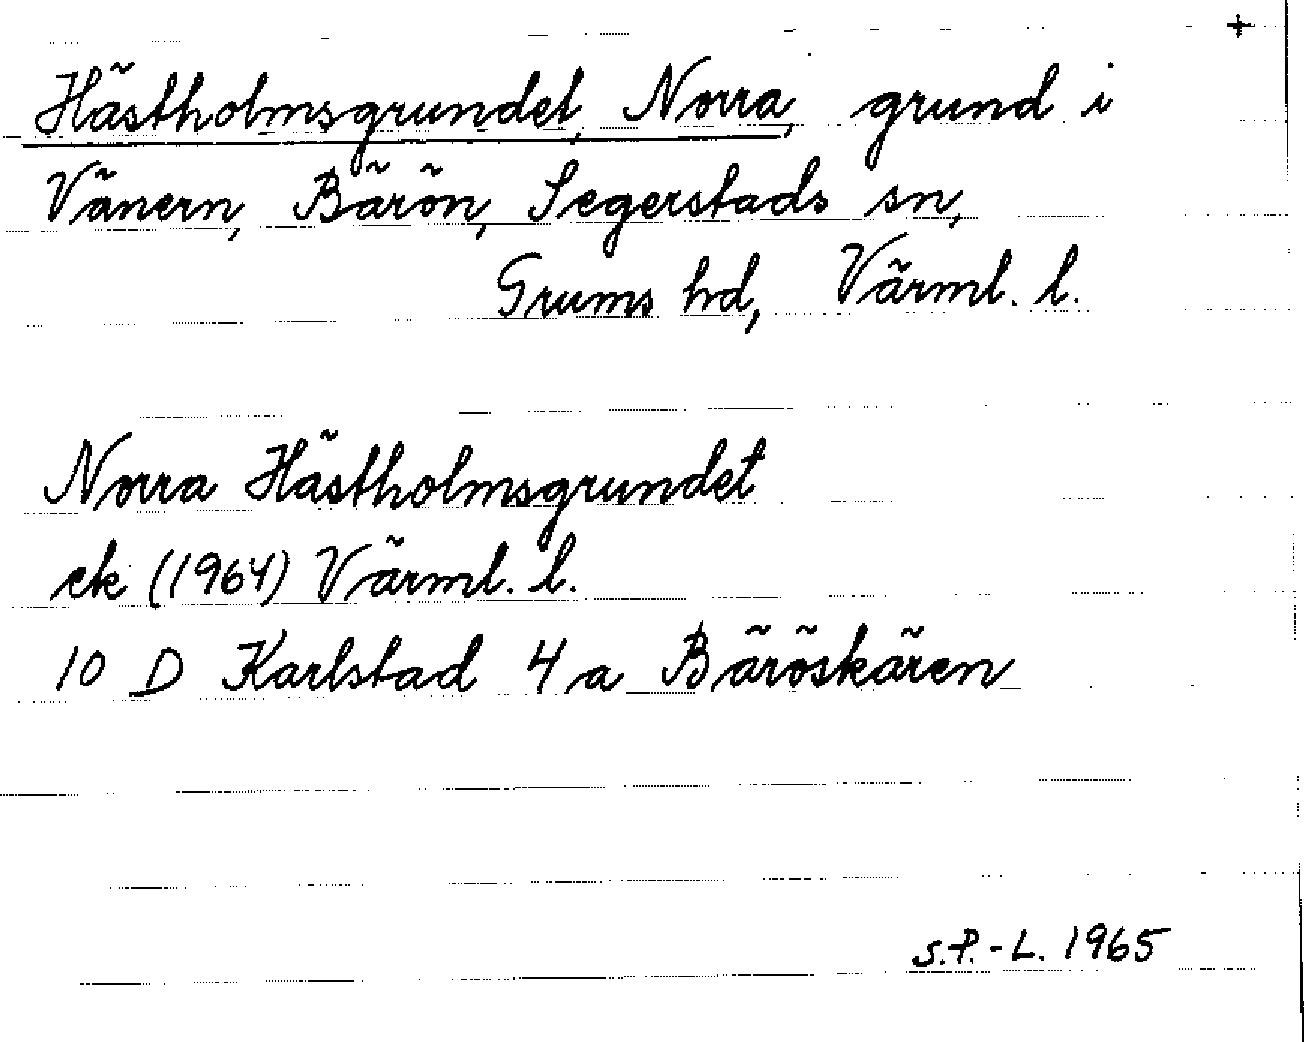 +
Hästholmsgrundet, Norra, grund i
Vänern, Bärön, Segerstads sn,
Grums hd, Värml. l.
Norra Hästholmsgrundet
ek (1964) Värml. l.
10 D Karlstad 4 a Bäröskären
S.P.-L. 1965